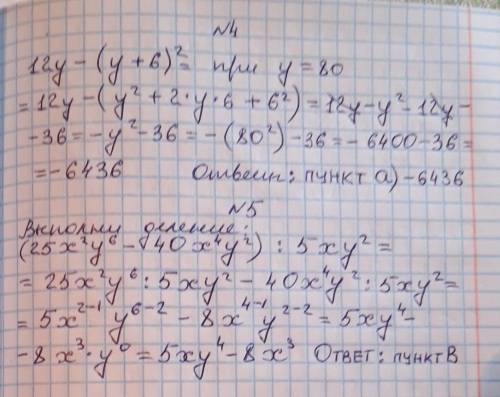 №4
12y - (y + 6)² = при y = 80
= 12y - (y² + 2·y·6 + 6²) = 12y - y² - 12y -
- 36 = - y² - 36 = - (80²) - 36 = - 6400 - 36 =
= - 6436 Ответ: пункт а) - 6436
№5
Выполни деление:
(25x²y⁶ - 40x⁴y²) : 5xy² =
= 25x²y⁶ : 5xy² - 40x⁴y² : 5xy² =
= 5x²⁻¹ y⁶⁻² - 8x⁴⁻¹ y²⁻² = 5xy⁴ -
- 8x³·y⁰ = 5xy⁴ - 8x³ Ответ: пункт В